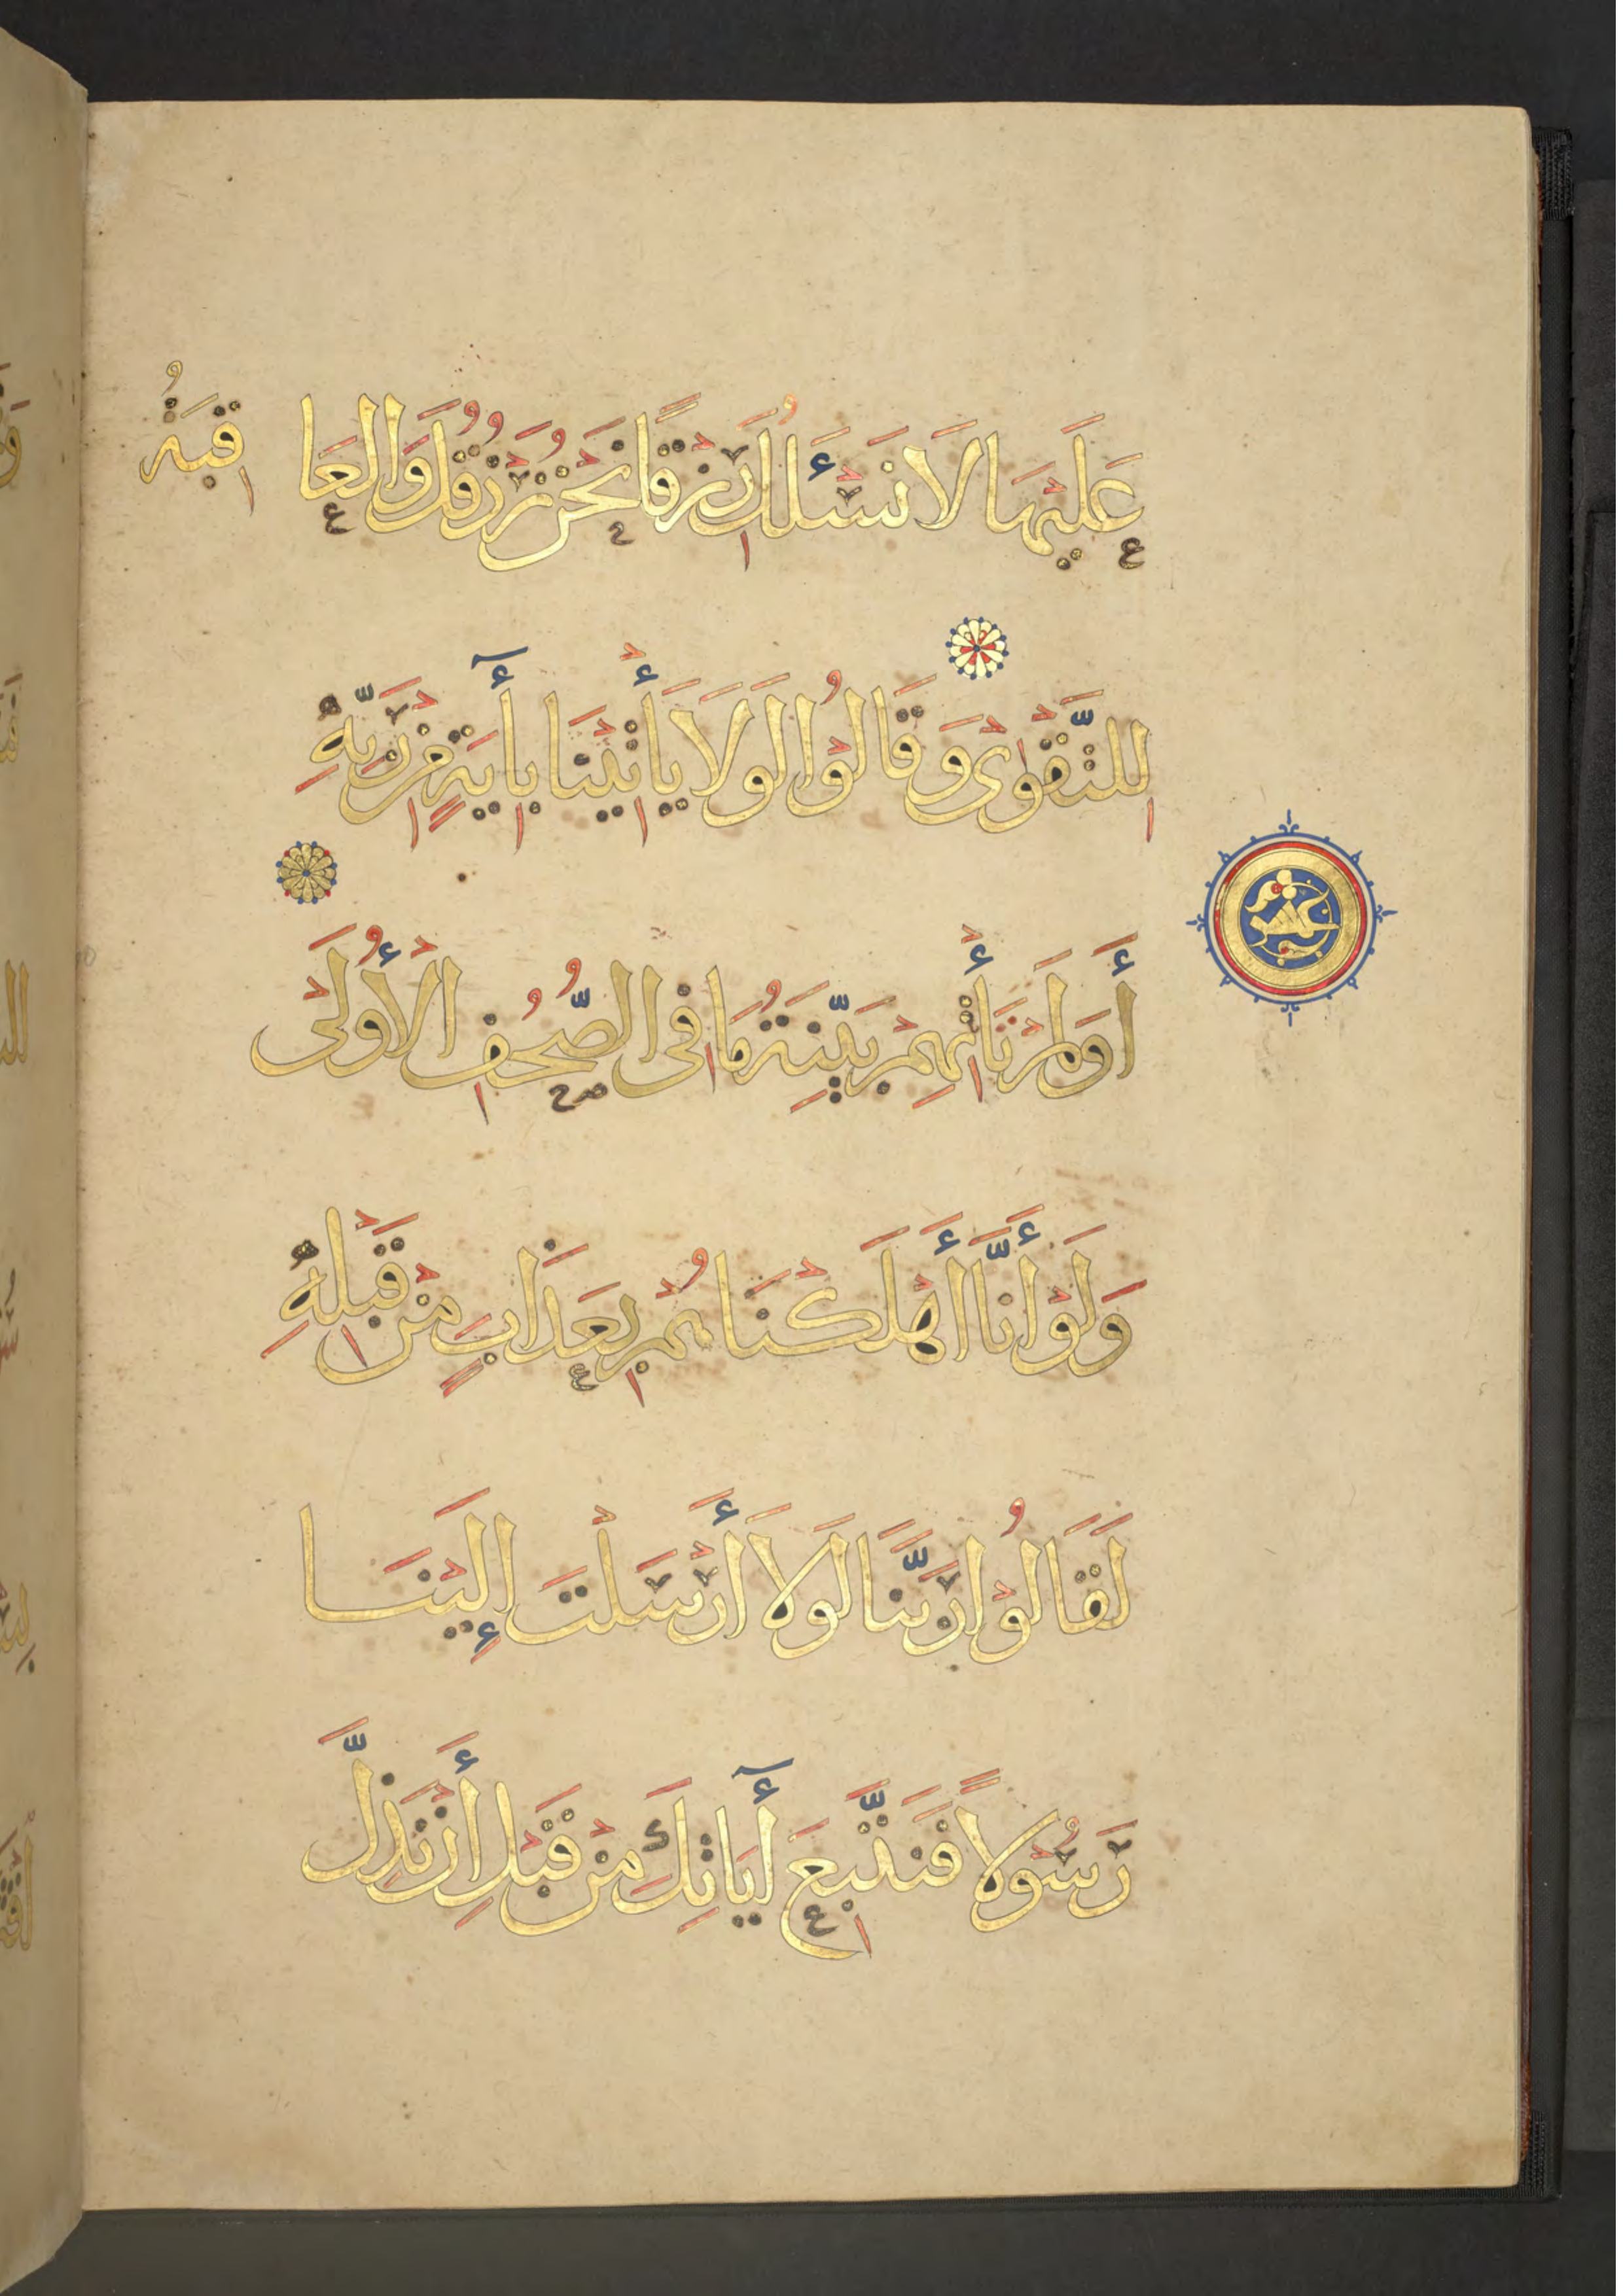 عَلَيْهَا لَا نَسْـَٔلُكَ رِزْقًا نَحْنُ نَرْزُقُكَ وَالْعَاقِبَةُ
لِلتَّقْوٰى وَقَالُوْا لَوْلَا يَأْتِيْنَا بِأٓيَةٍ مِنْ رَبِّهِ
أَوَلَمْ تَأْتِهِمْ بَيِّنَةُ مَا فِى الصُّحُفِ الْأُوْلَىٰ
وَلَوْ أَنَّا أَهْلَكْنَاهُمْ بِعَذَابٍ مِنْ قَبْلِهِ
لَقَالُوْا رَبَّنَا لَوْلَا أَرْسَلْتَ إِلَيْنَا
رَسُوْلًا فَنَتَّبِعَ أٓيَاتِكَ مِنْ قَبْلِ أَنْ نَذِلَّ